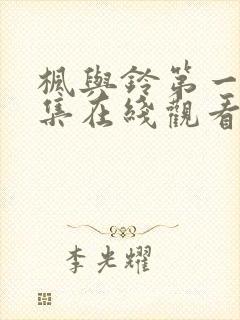 楓與鈴第一
集在綫觀看
李光耀